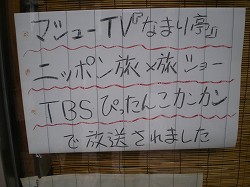 マシューTV『なまり亭』
ニッポン旅×旅ショー
TBSぴったんこカンカン
で放送されました